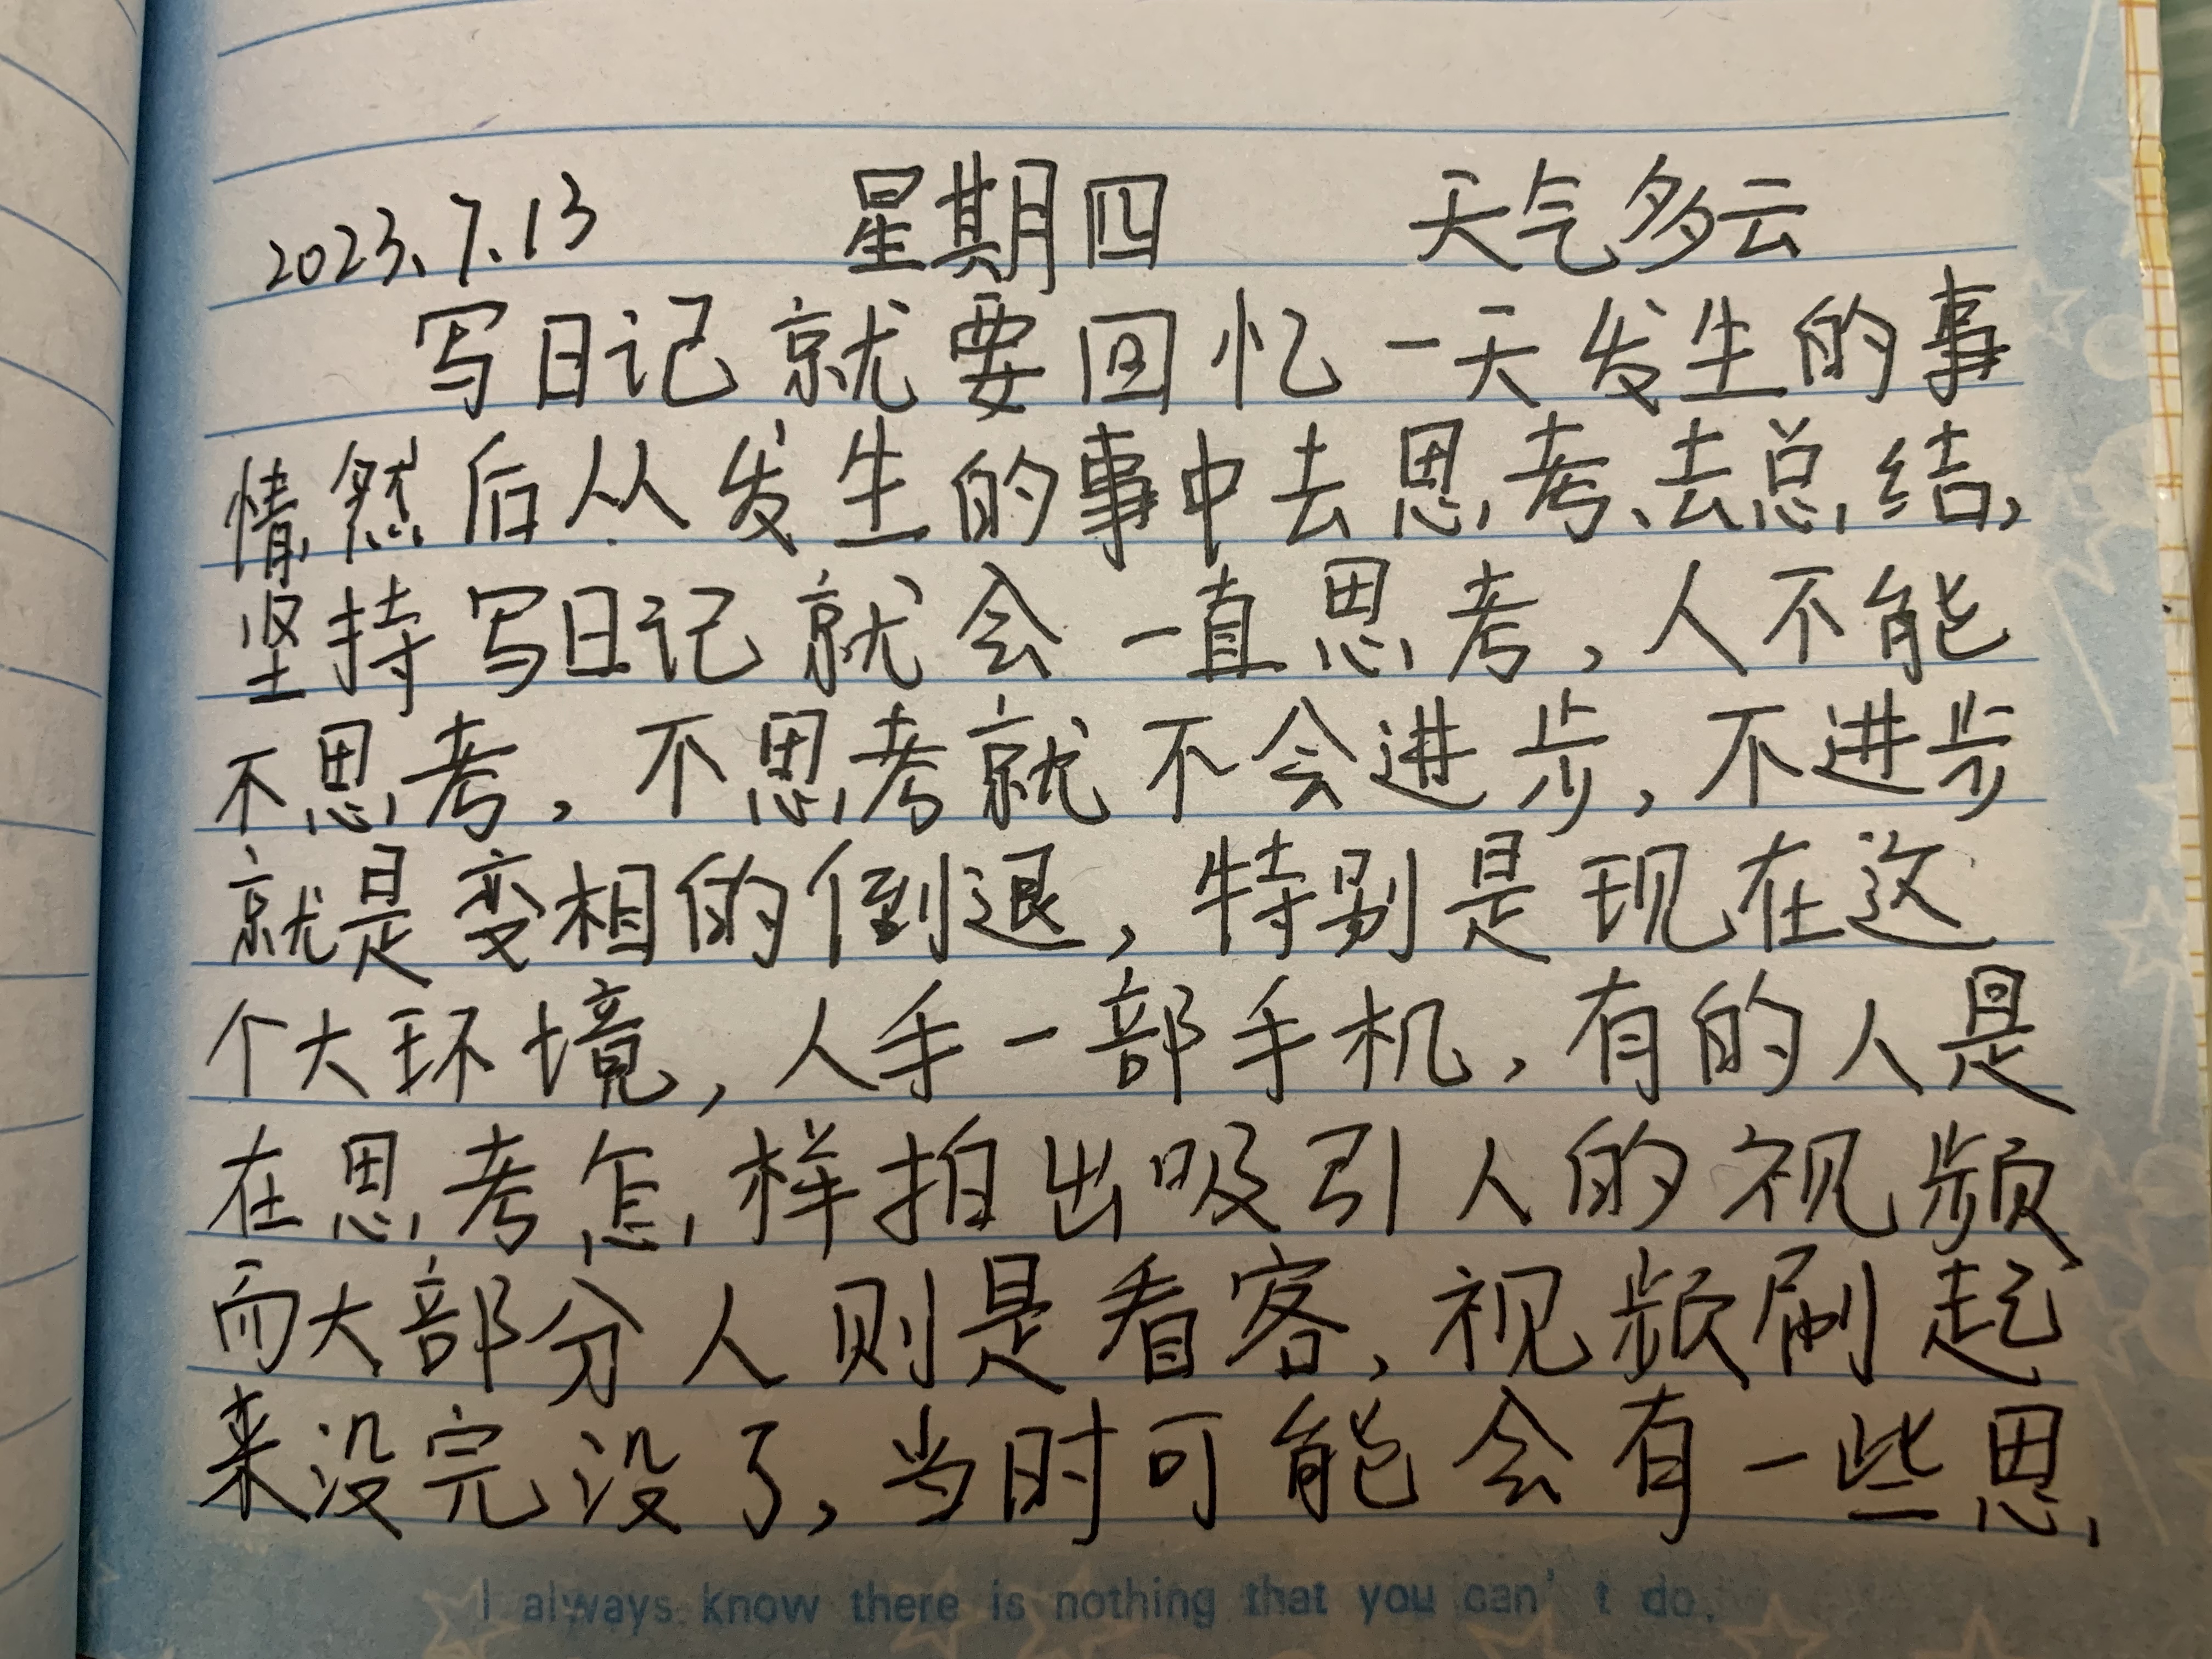 2023.7.13 星期四 天气多云
写日记就要回忆一天发生的事
情然后从发生的事中去思考、去总结,
坚持写日记就会一直思考,人不能
不思考,不思考就不会进步,不进步
就是变相的倒退,特别是现在这
个大环境,人手一部手机,有的人是
在思考怎样拍出吸引人的视频
而大部分人则是看客,视频刷起
来没完没了,当时可能会有一些思
I always know there is nothing that you can't do.